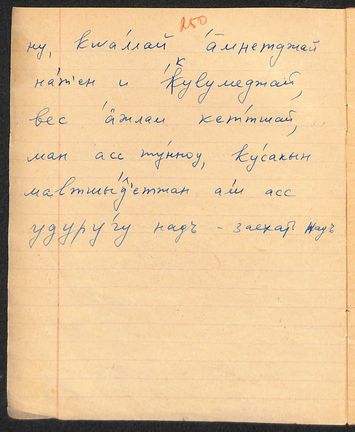 250
ну, ква́лай а́мнетджай
на́тен и к
Ку́вумеджай,
вес а́жлам кетшай,
ман асс ту́нноу, ку́сакын
асс
удуру́гу надъ - заехать надъ